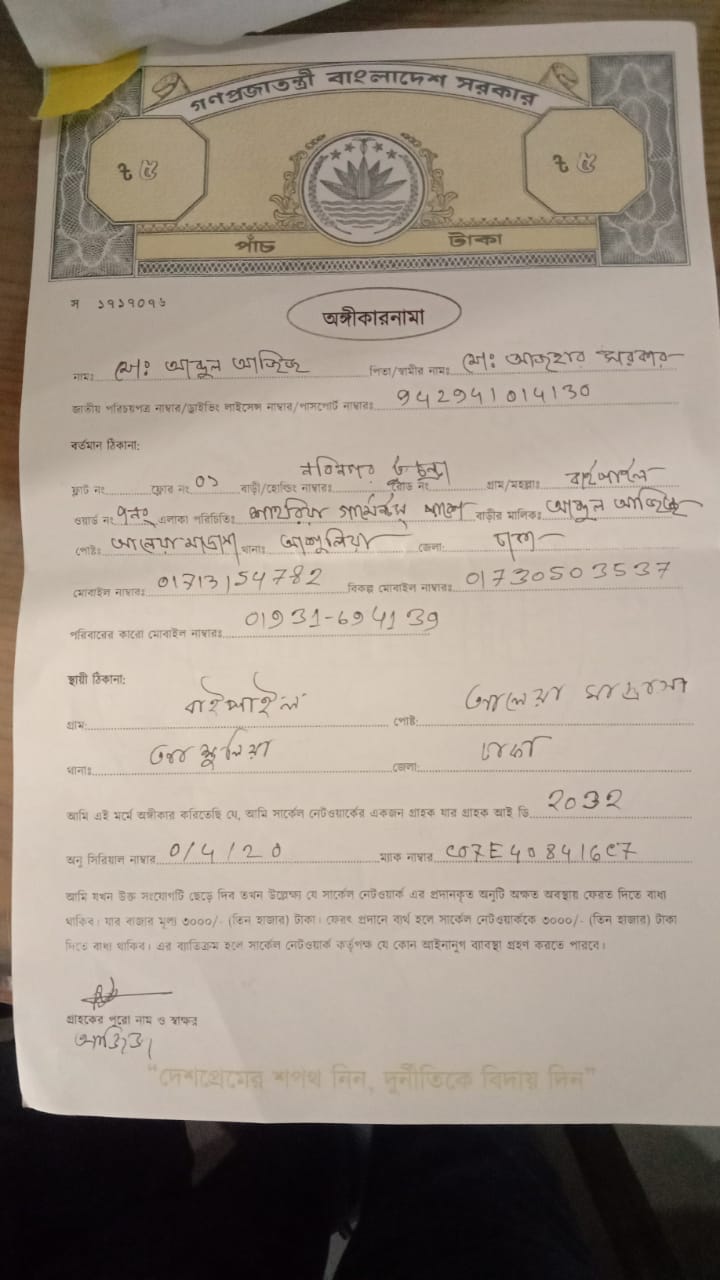 গণপ্রজাতন্ত্রী বাংলাদেশ সরকার
৳ ৫ ৳ ৫
পাঁচ টাকা
স ১৭১৭০৭৬
অঙ্গীকারনামা
নামঃ মোঃ আব্দুল আজিজ পিতা/স্বামীর নামঃ মোঃ আজহার সরকার
জাতীয় পরিচয়পত্র নাম্বার/ড্রাইভিং লাইসেন্স নাম্বার/পাসপোর্ট নাম্বারঃ 942941014130
বর্তমান ঠিকানা:
ফ্লাট নং ফ্লোর নং ০১ বাড়ী/হোল্ডিং নাম্বারঃ রোড নং গ্রাম/মহল্লাঃ বাইপাইল
ওয়ার্ড নং ৭নং এলাকা পরিচিতিঃ গার্মেন্টস্ পাশে বাড়ীর মালিকঃ আব্দুল আজিজ
পোষ্টঃ আলেয়া মাদ্রাসা থানাঃ আশুলিয়া জেলা: ঢাকা
মোবাইল নাম্বারঃ 01713154782 বিকল্প মোবাইল নাম্বারঃ 01730503537
পরিবারের কারো মোবাইল নাম্বারঃ 01931-694139
স্থায়ী ঠিকানা:
গ্রাম: বাইপাইল পোষ্ট: আলেয়া মাদ্রাসা
থানাঃ আশুলিয়া জেলা: ঢাকা
আমি এই মর্মে অঙ্গীকার করিতেছি যে, আমি সার্কেল নেটওয়ার্কের একজন গ্রাহক যার গ্রাহক আই ডি 2032
অনু সিরিয়াল নাম্বার 0/4/20 ম্যাক নাম্বার C07E408416C7
আমি যখন উক্ত সংযোগটি ছেড়ে দিব তখন উল্লেক্ষ্য যে সার্কেল নেটওয়ার্ক এর প্রদানকৃত অনুটি অক্ষত অবস্থায় ফেরত দিতে বাধ্য
থাকিব। যার বাজার মূল্য ৩০০০/- (তিন হাজার) টাকা। ফেরৎ প্রদানে ব্যর্থ হলে সার্কেল নেটওয়ার্ককে ৩০০০/- (তিন হাজার) টাকা
দিতে বাধ্য থাকিব। এর ব্যতিক্রম হলে সার্কেল নেটওয়ার্ক কর্তৃপক্ষ যে কোন আইনানুগ ব্যবস্থা গ্রহণ করতে পারবে।
গ্রাহকের পুরো নাম ও স্বাক্ষর
আজিজ
“দেশপ্রেমের শপথ নিন, দুর্নীতিকে বিদায় দিন”